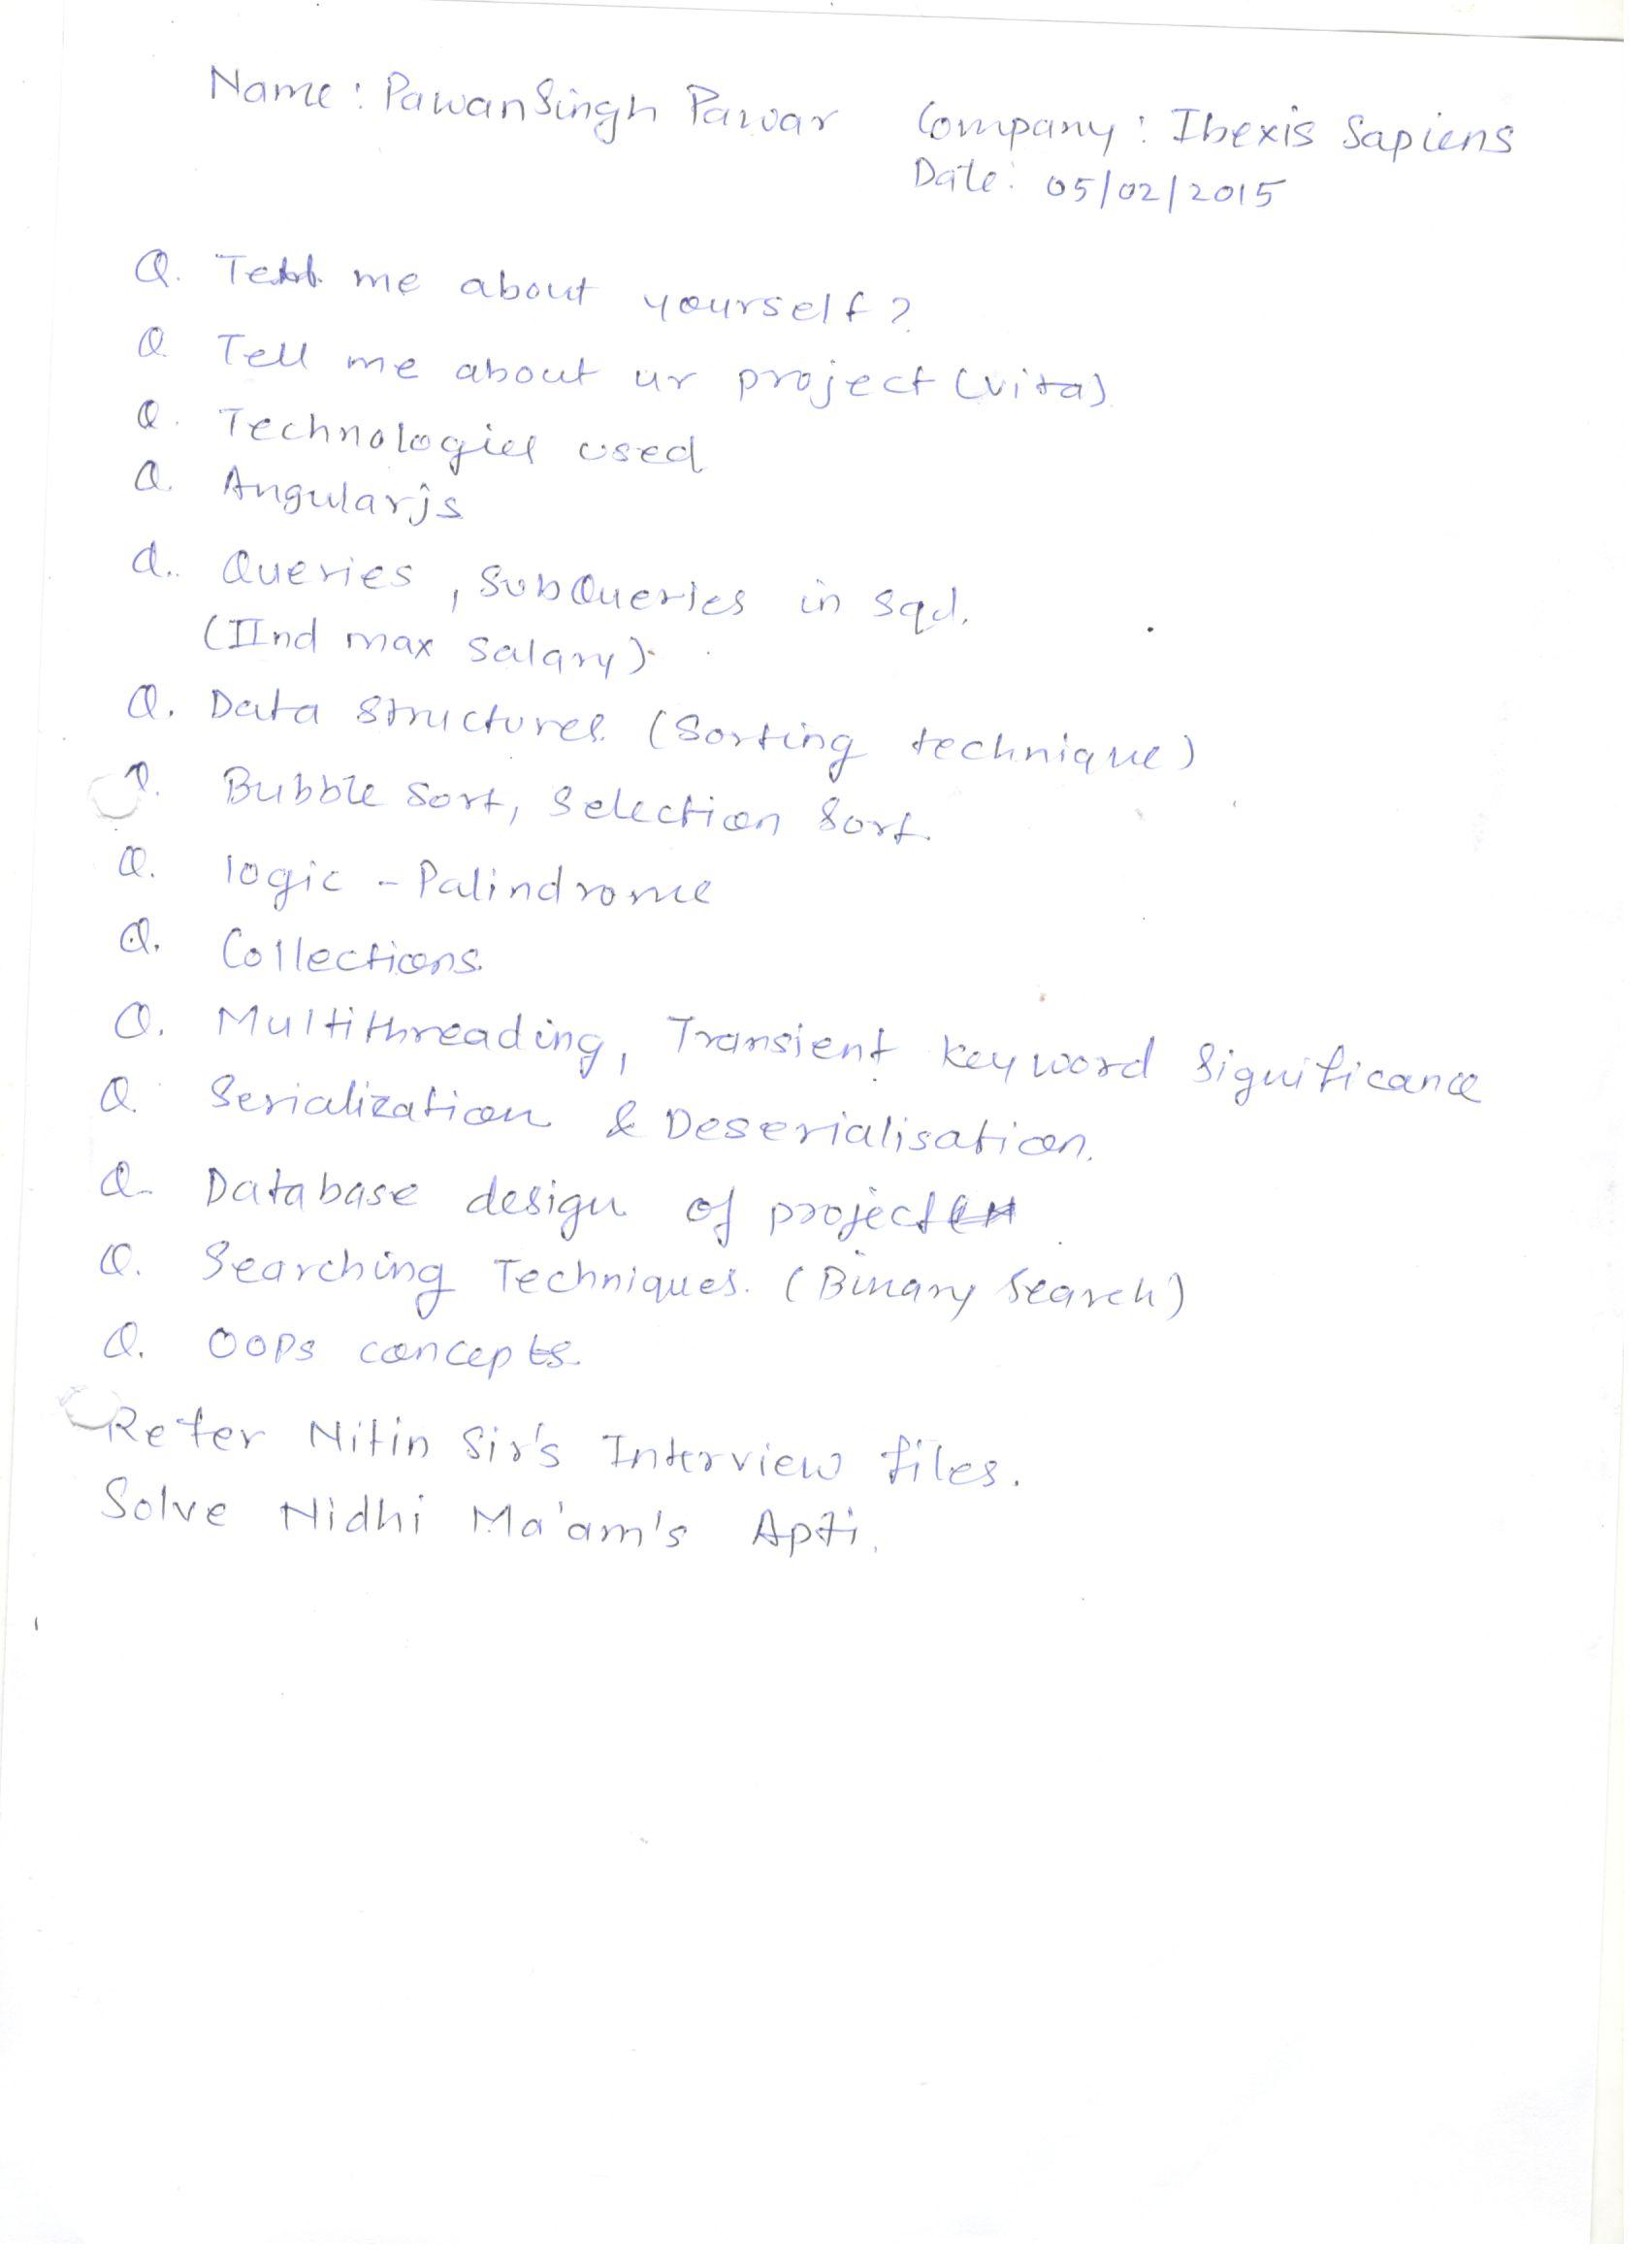 Name: PawanSingh Pawar Company: Ibexis Sapiens
Date: 05/02/2015
Q. Tell me about yourself?
Q. Tell me about ur project (vita)
Q. Technologies used
Q. Angularjs
Q. Queries, SubQueries in sql.
(IInd max salary).
Q. Data structures (Sorting technique)
Q. Bubble Sort, Selection Sort.
Q. logic - Palindrome
Q. Collections.
Q. Multithreading, Transient keyword significance
Q. Serialization & Deserialisation.
Q. Database design of project
Q. Searching Techniques. (Binary Search)
Q. OOPs concepts.
Refer Nitin Sir's Interview files.
Solve Nidhi Ma'am's Apti.